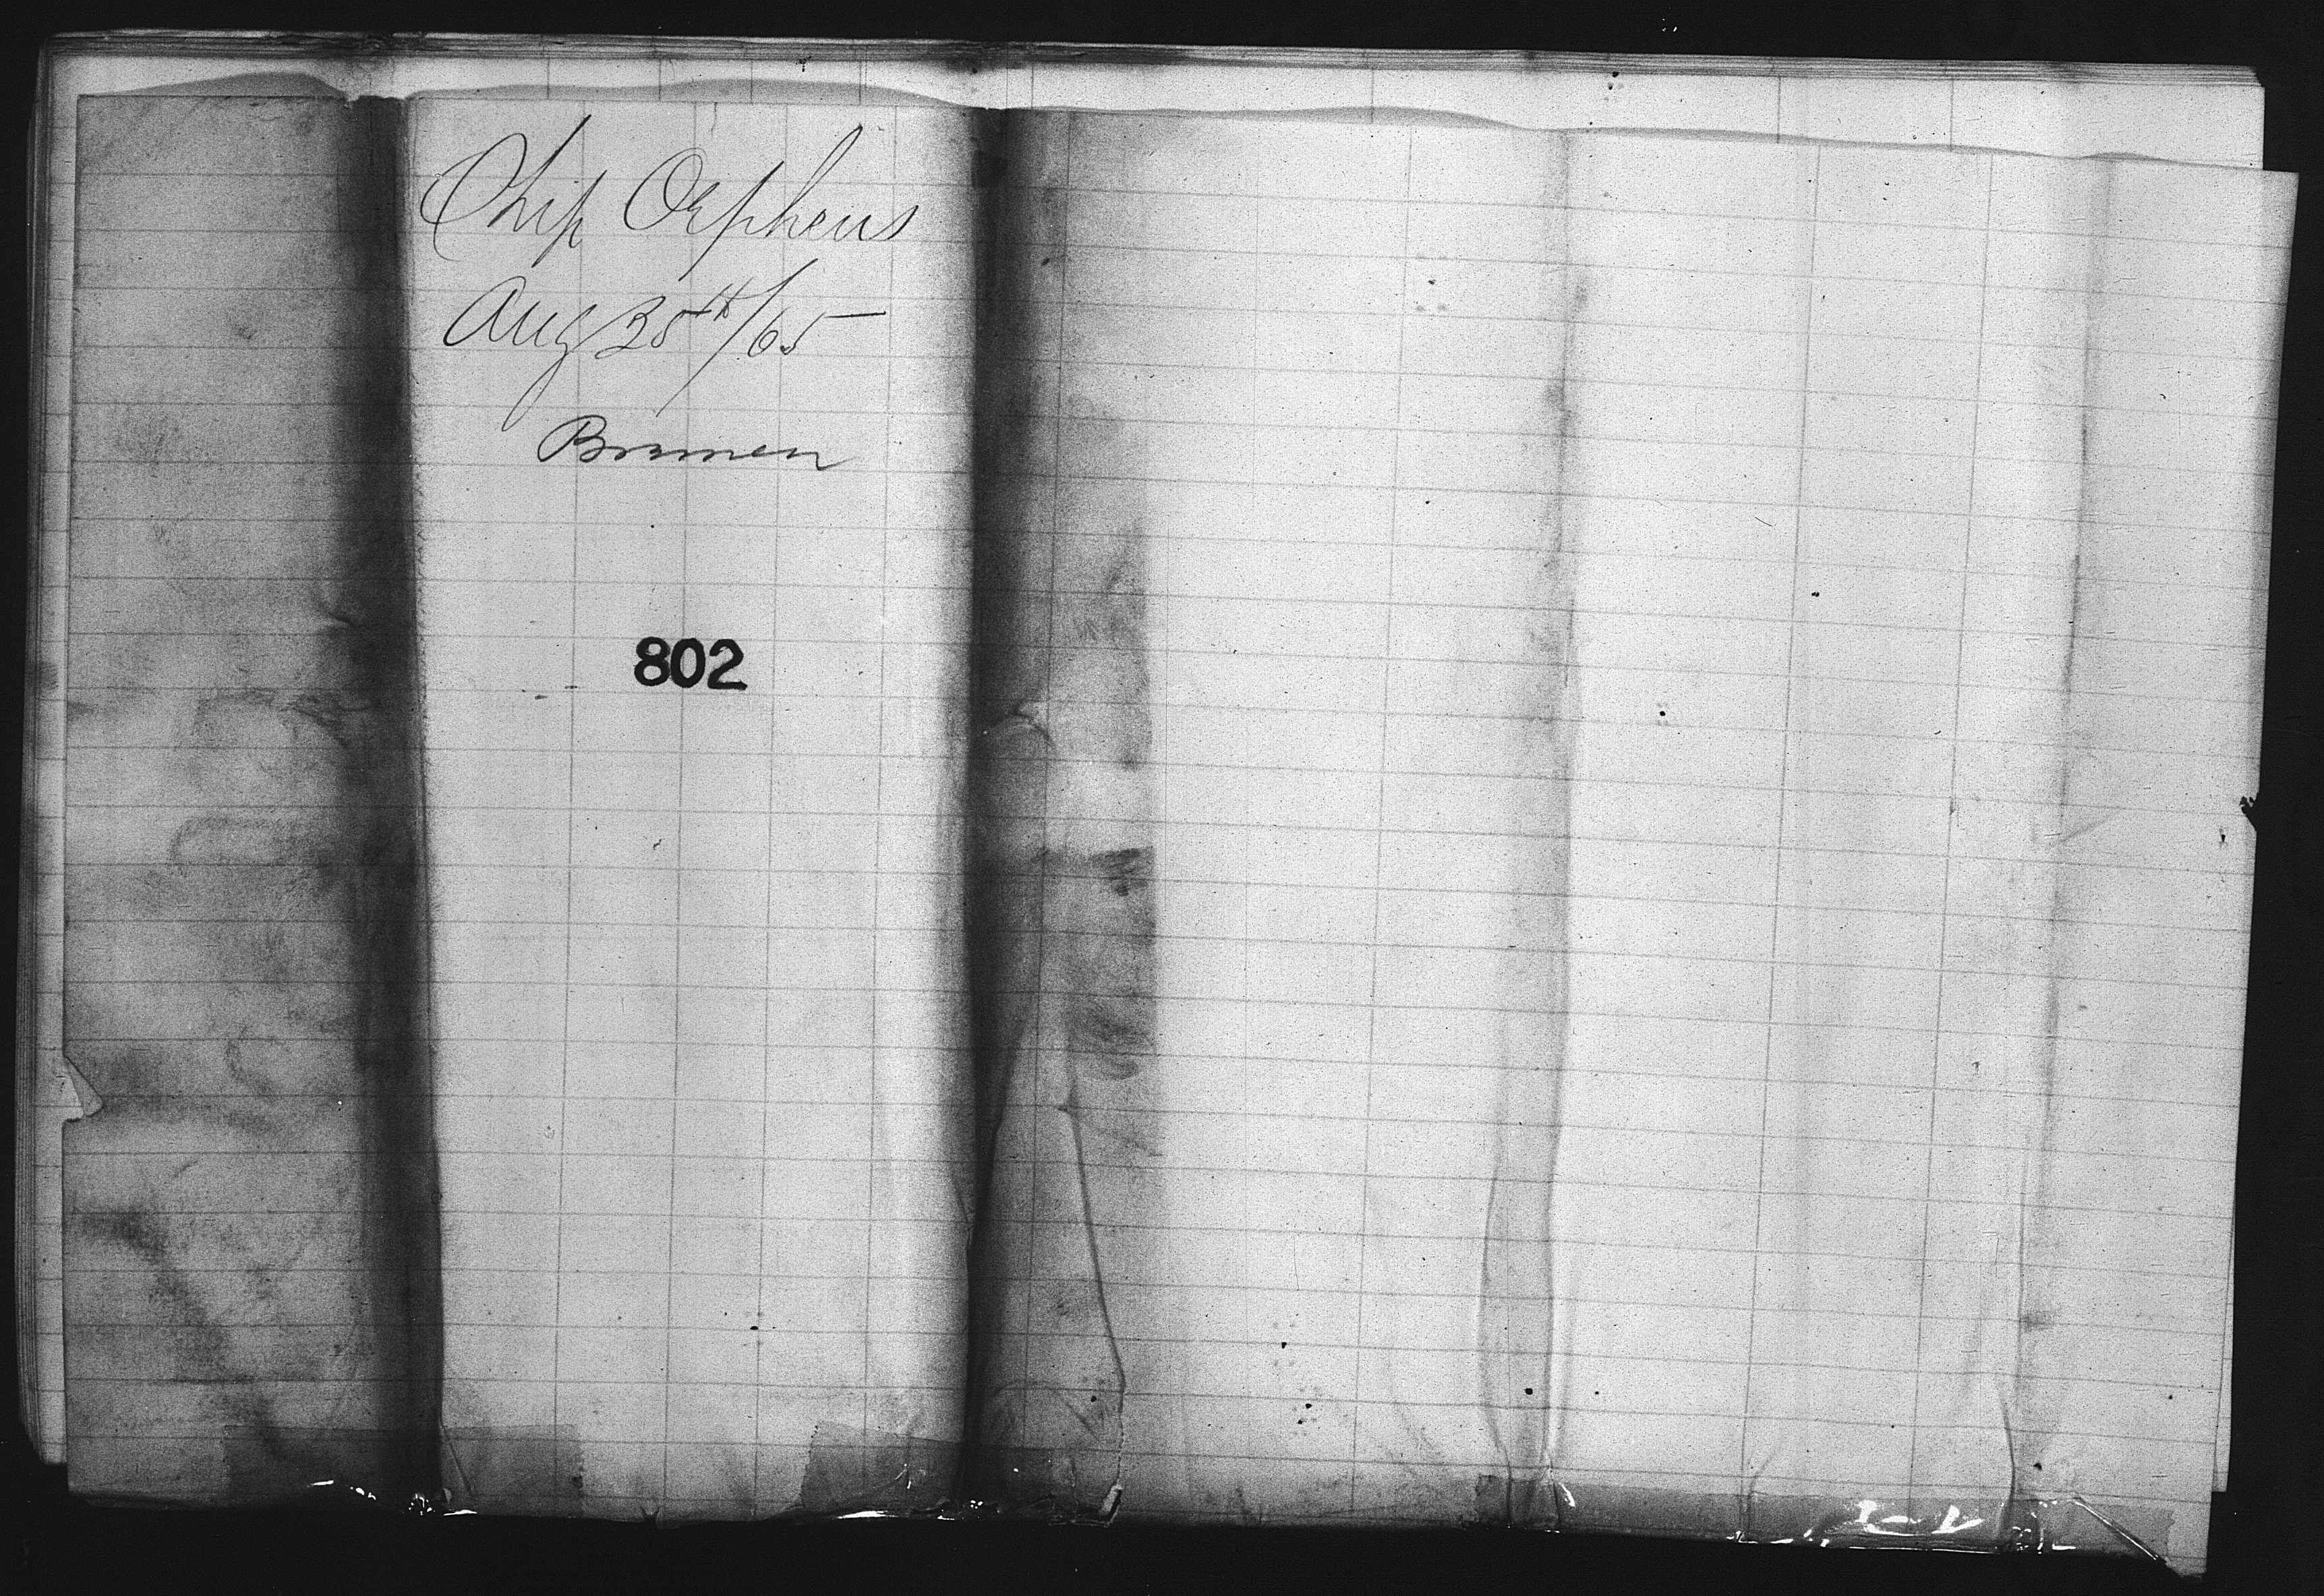 Ship Orpheus
Aug 25th/65
Bremen
802